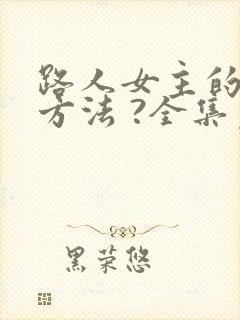 路人女主的
方法?全集
黑荣悠